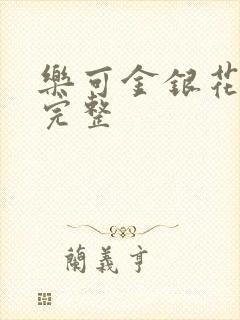 樂可金銀花
完整
蘭義亨